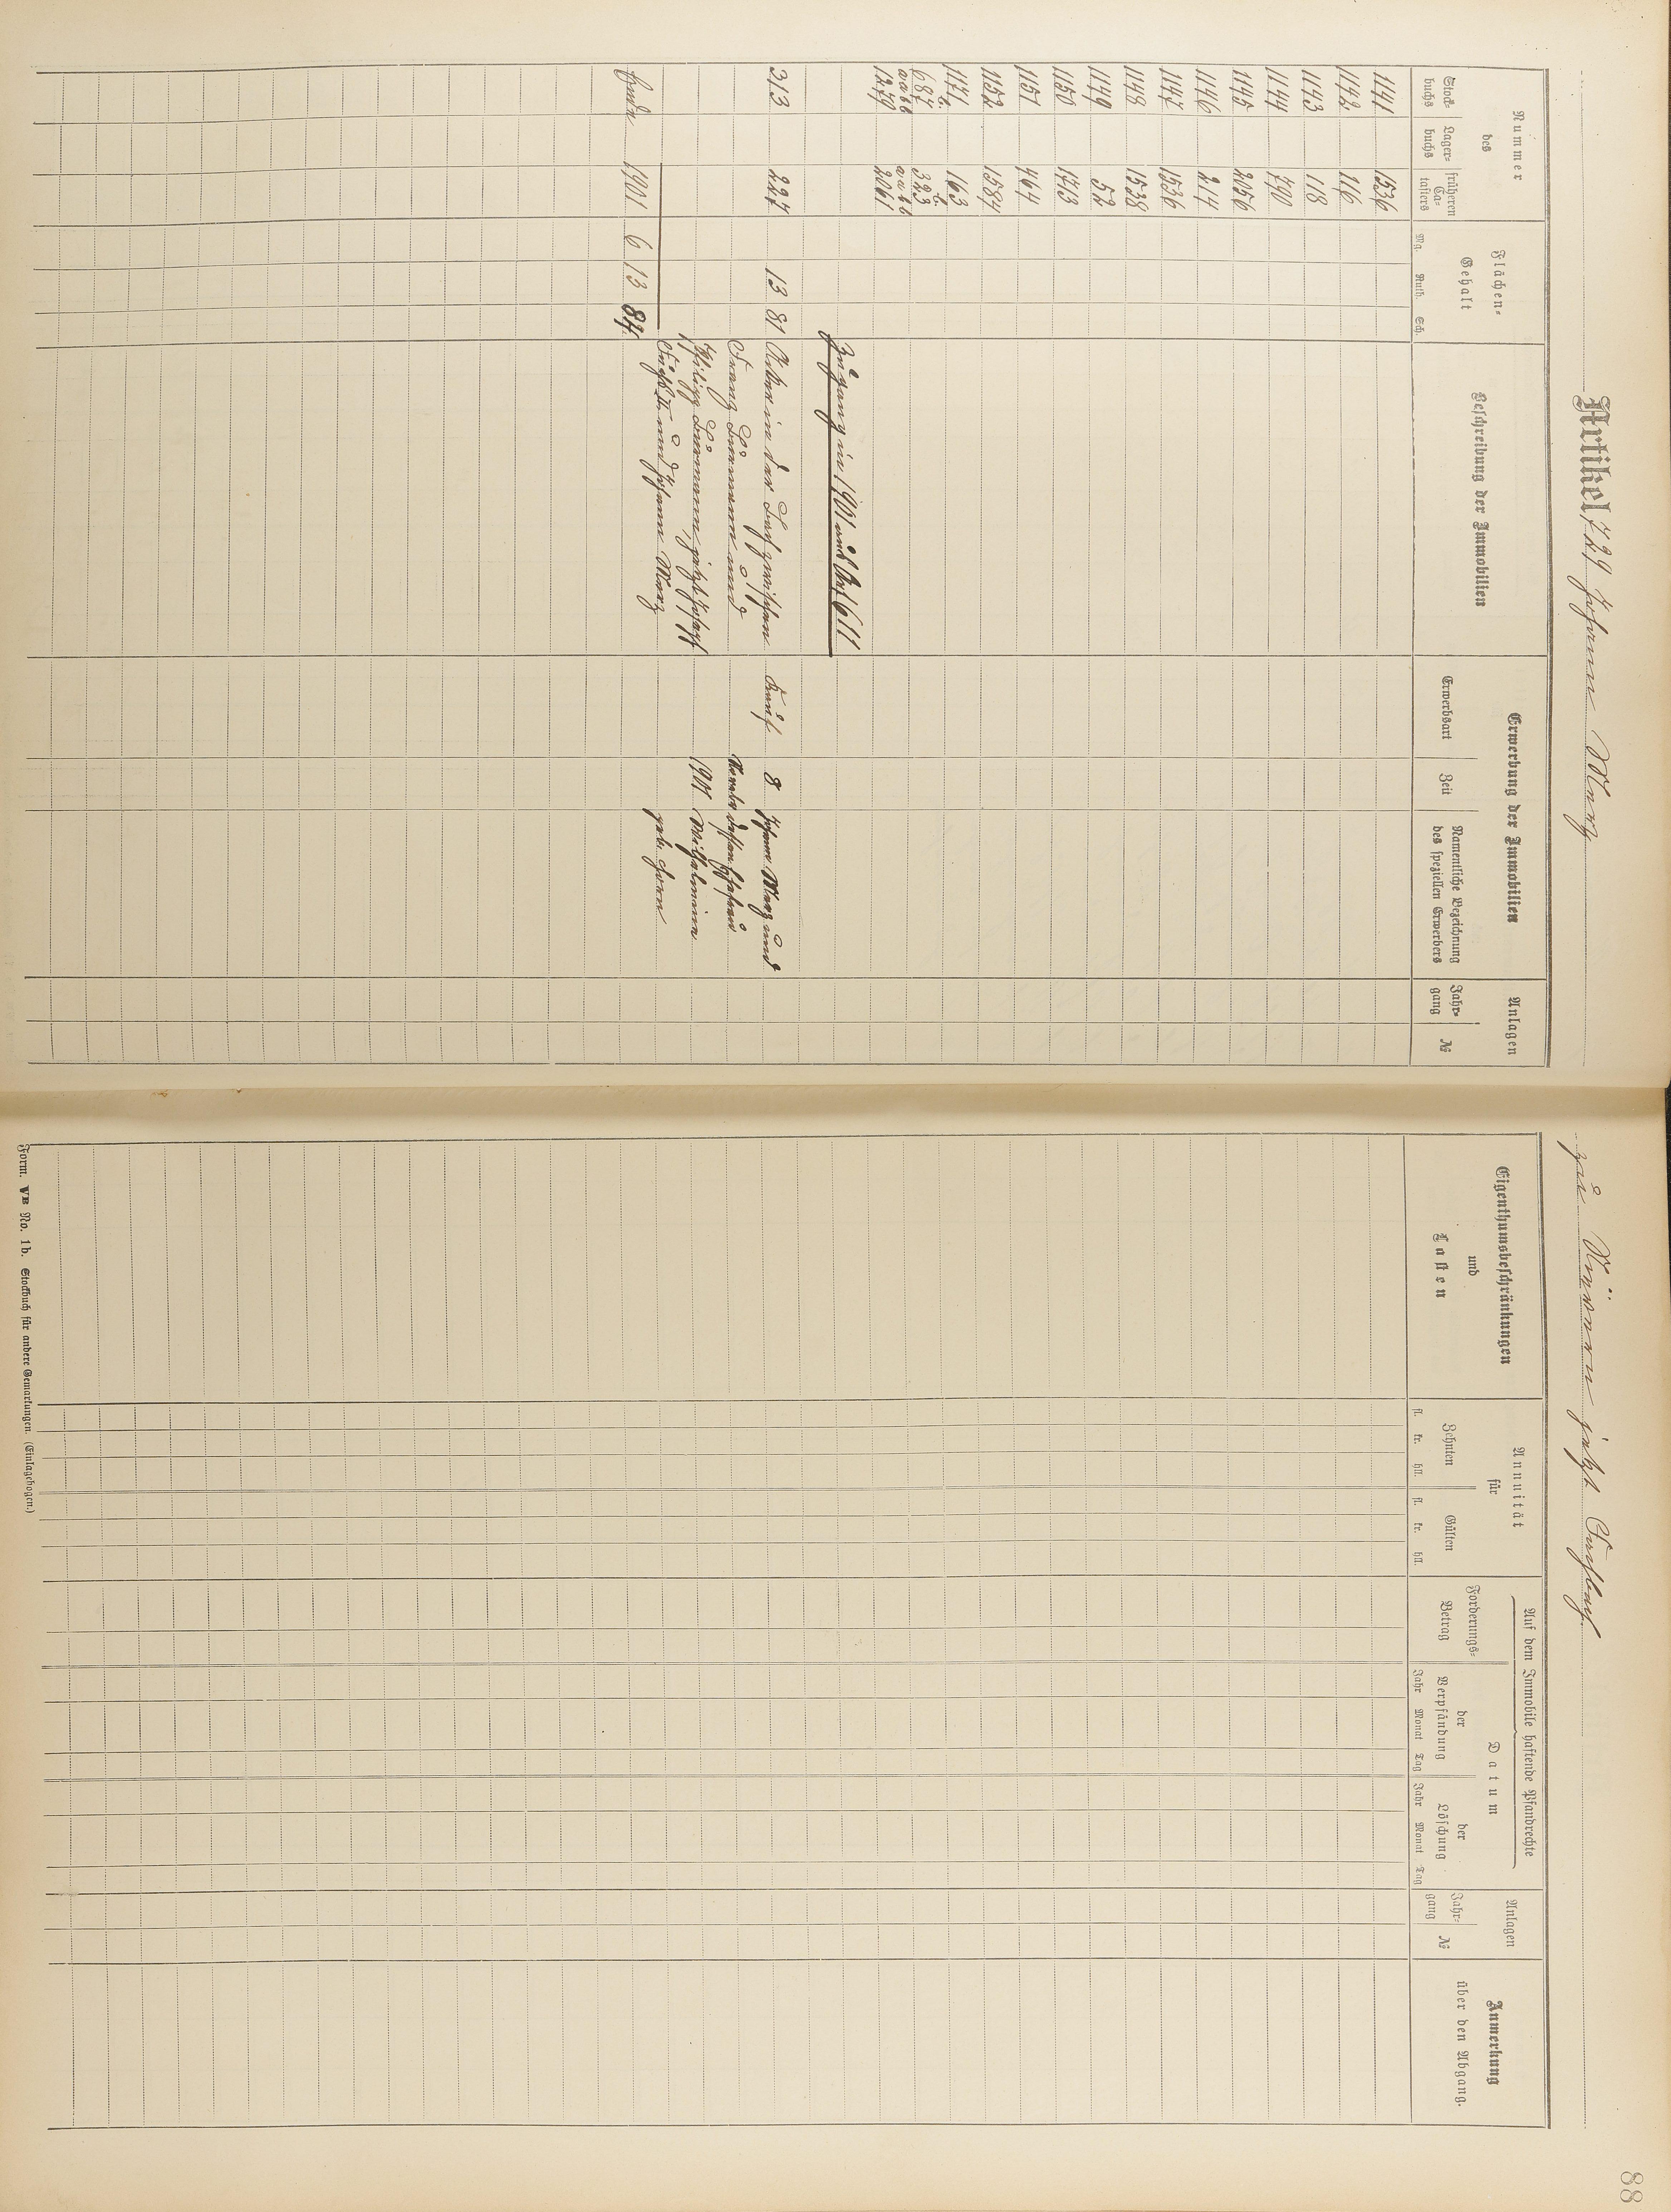 Artikel 729 Johann Marz
zu Münnau jetzt
88
Nummer
des
Stock-
buchs
Lager-
buchs
früheren
Ca-
tasters
Flächen-
Gehalt
Mg. Ruth. Sch.
Beschreibung der Immobilien
Erwerbung der Immobilien
Erwerbsart
Zeit
Namentliche Bezeichnung
des speziellen Erwerbers
Anlagen
Jahr-
gang
№
Eigenthumsbeschränkungen
und
Lasten
Annuität
für
Zehnten
fl. kr. hll.
Gülten
fl. kr. hll.
Auf dem Immobile haftende Pfandrechte
Forderungs-
Betrag
Datum
der
Verpfändung
Jahr Monat Tag
der
Löschung
Jahr Monat Tag
Anlagen
Jahr-
gang
№
Anmerkung
über den Abgang.
1141 1536
1142 116
1143 118
1144 790
1145 2056
1146 214
1147 1536
1148 1538
1149 52
1150 1713
1151 464
1152 1584
1171 163
687 323
1279 2061
Zugang in 1901 aus Art 611
313 227 13 81 Acker in der zwischen Kauf 8 Johann Marz und
Franz und Novbr dessen Ehefrau
Philipp jetzt Josef 1901 Wilhelmine
II. und Johann Marz geb. Horn
Ende 1901 6 13 84
Form. VB No. 1b. Stockbuch für andere Gemarkungen. (Einlagebogen.)